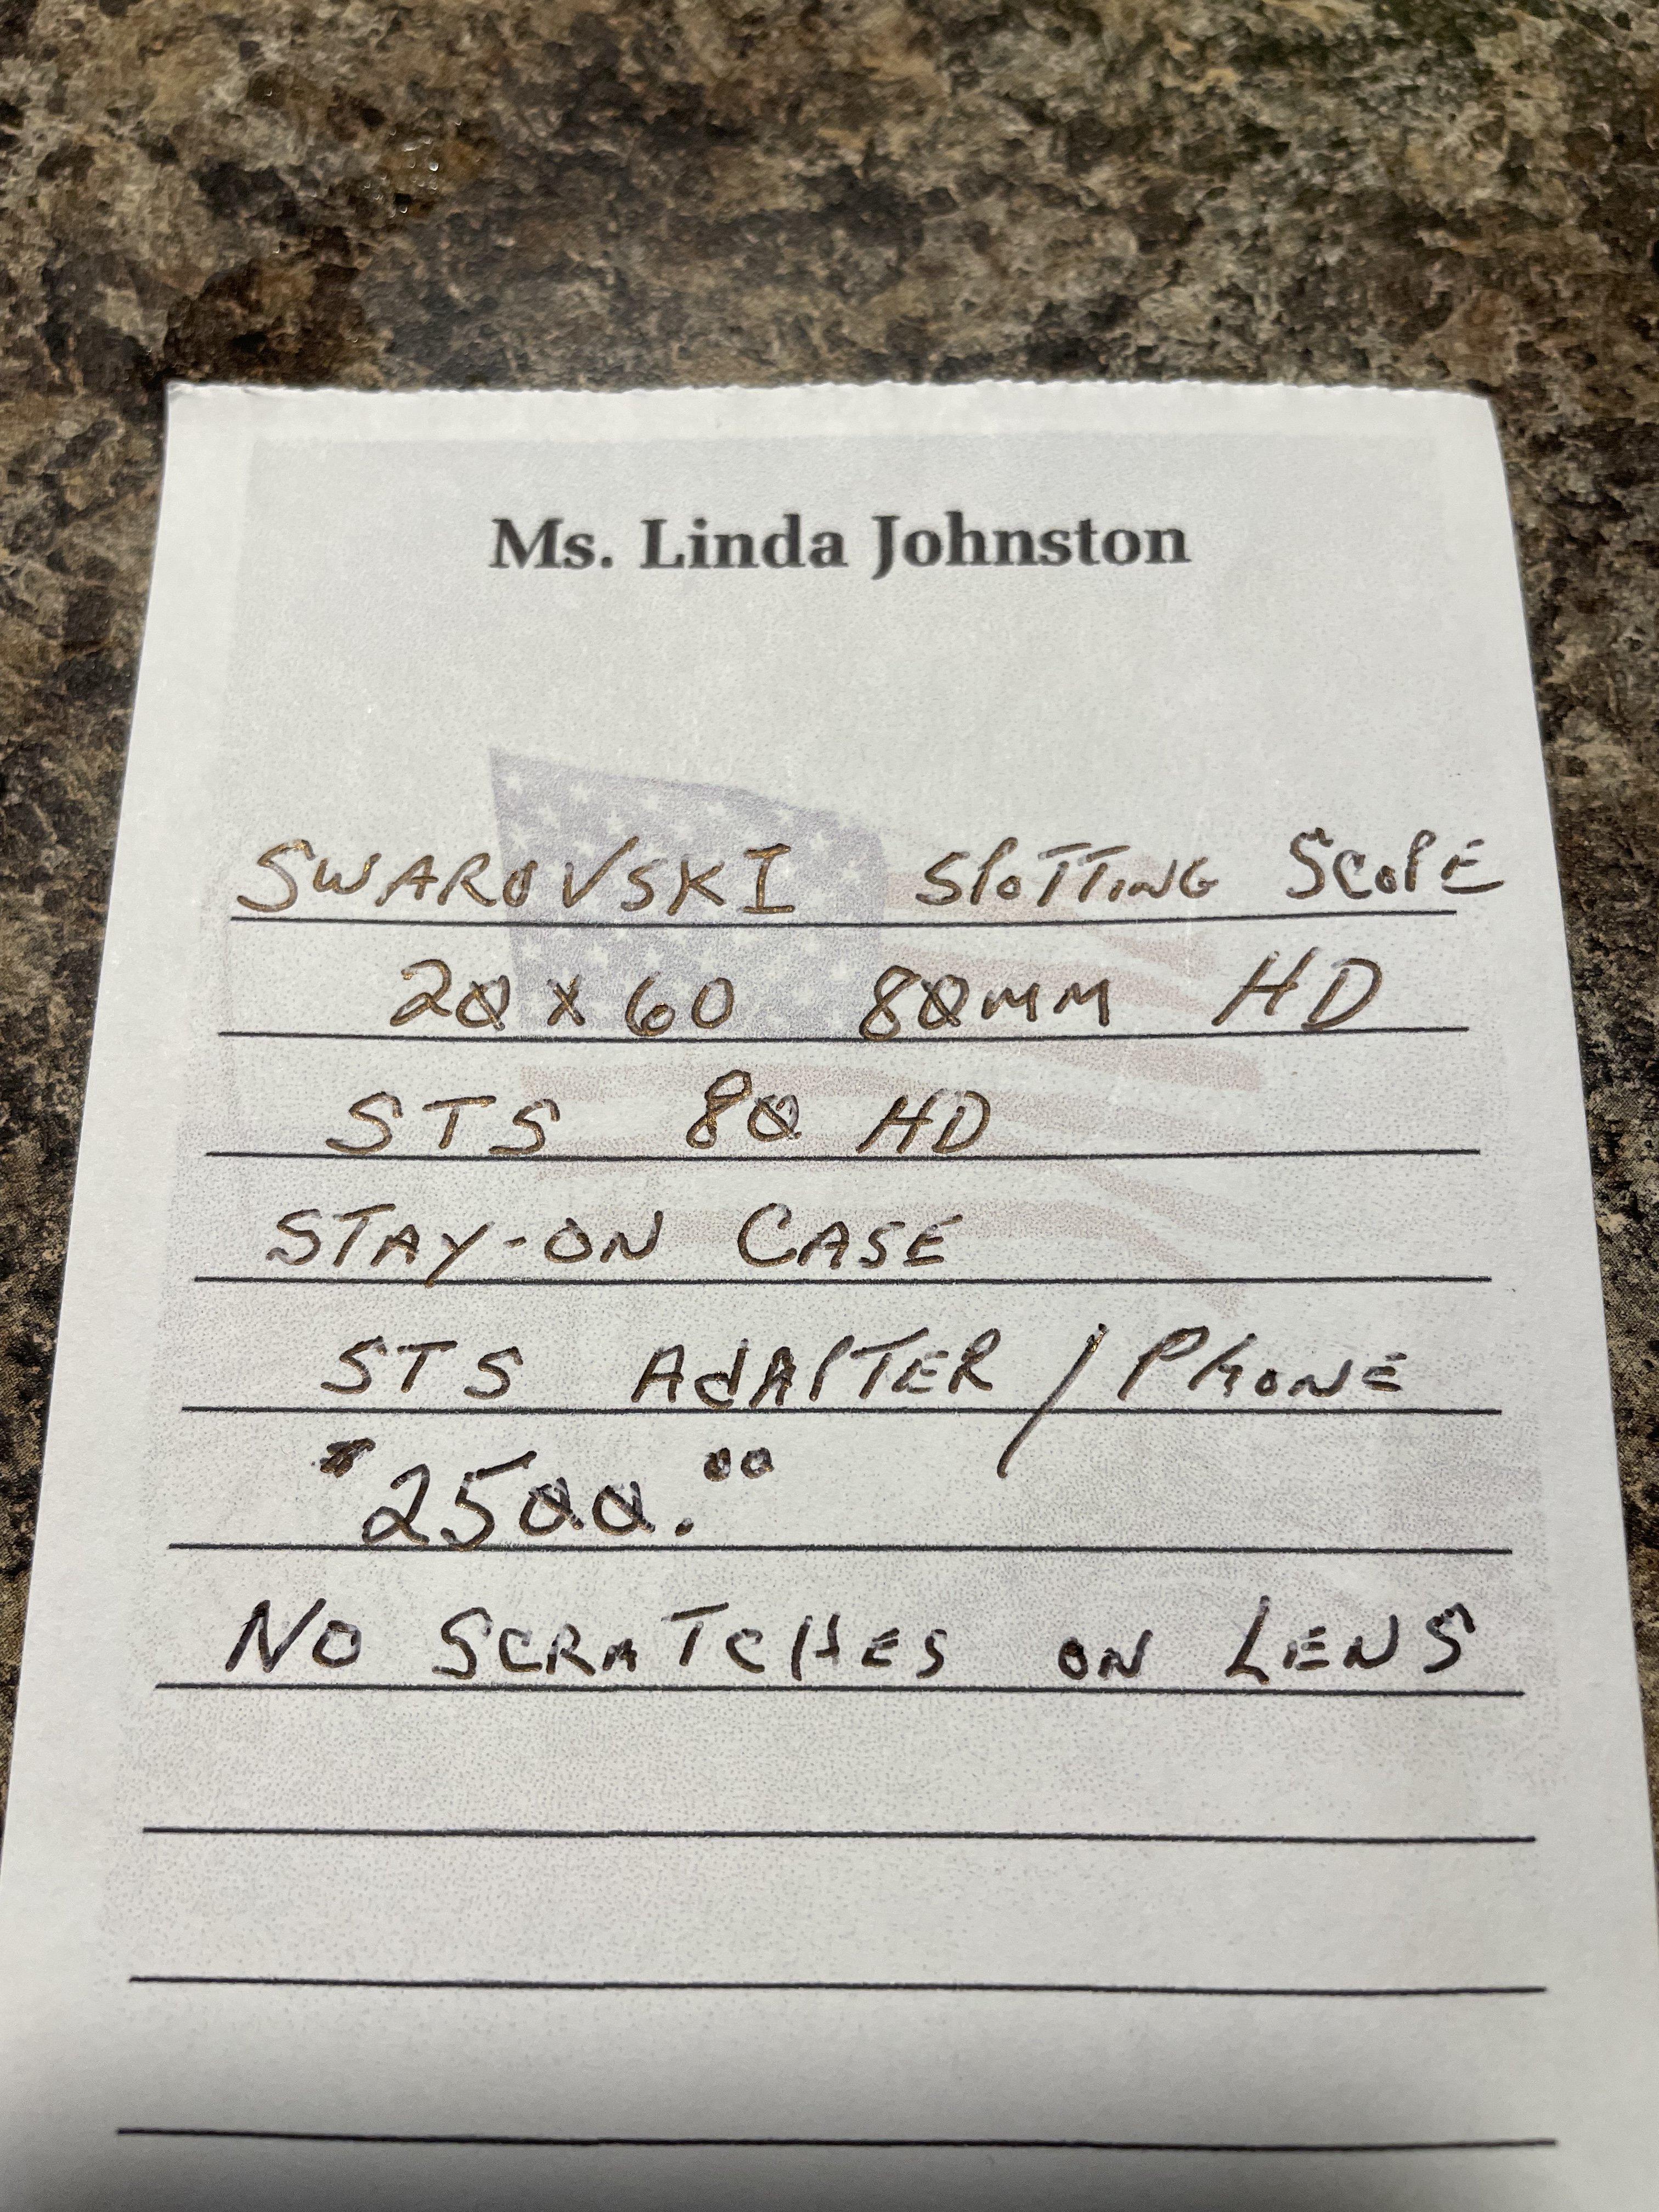 Ms. Linda Johnston
SWAROVSKI SPOTTING SCOPE
20 X 60 80MM HD
STS 80 HD
STAY-ON CASE
STS AdAPTER / PHONE
$2500.00
NO SCRATCHES ON LENS